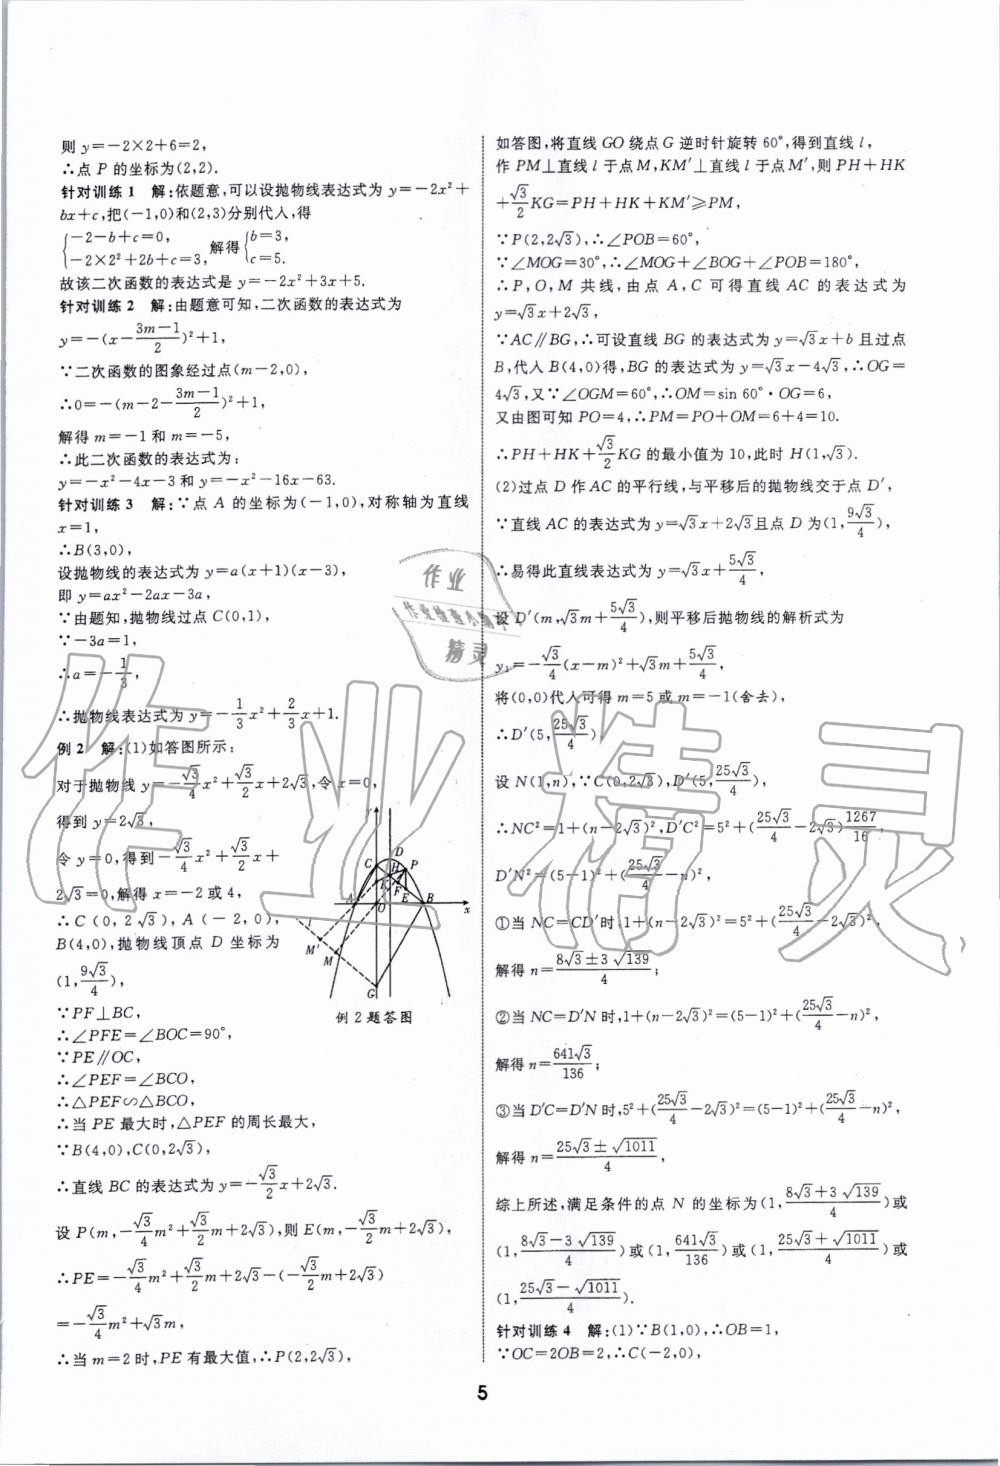 则 y=-2×2+6=2,
∴点 P 的坐标为(2,2).
针对训练 1 解:依题意,可以设抛物线表达式为 y=-2x²+
bx+c,把(-1,0)和(2,3)分别代入,得
{-2-b+c=0, -2×2²+2b+c=3, 解得 {b=3, c=5.
故该二次函数的表达式是 y=-2x²+3x+5.
针对训练 2 解:由题意可知,二次函数的表达式为
y=-(x-(3m-1)/2)²+1,
∵二次函数的图象经过点(m-2,0),
∴0=-(m-2-(3m-1)/2)²+1,
解得 m=-1 和 m=-5,
∴此二次函数的表达式为:
y=-x²-4x-3 和 y=-x²-16x-63.
针对训练 3 解:∵点 A 的坐标为(-1,0),对称轴为直线
x=1,
∴B(3,0),
设抛物线的表达式为 y=a(x+1)(x-3),
即 y=ax²-2ax-3a,
∵由题知,抛物线过点 C(0,1),
∵-3a=1,
∴a=-1/3,
∴抛物线表达式为 y=-1/3x²+2/3x+1.
例 2 解:(1)如答图所示:
对于抛物线 y=-√3/4x²+√3/2x+2√3,令 x=0,
得到 y=2√3,
令 y=0,得到-√3/4x²+√3/2x+
2√3=0,解得 x=-2 或 4,
∴C(0,2√3),A(-2,0),
B(4,0),抛物线顶点 D 坐标为
(1,9√3/4),
∵PF⊥BC,
∴∠PFE=∠BOC=90°,
∵PE∥OC,
∴∠PEF=∠BCO,
∴△PEF∽△BCO,
∴当 PE 最大时,△PEF 的周长最大,
∵B(4,0),C(0,2√3),
∴直线 BC 的表达式为 y=-√3/2x+2√3.
设 P(m,-√3/4m²+√3/2m+2√3),则 E(m,-√3/2m+2√3),
∴PE=-√3/4m²+√3/2m+2√3-(-√3/2m+2√3)
=-√3/4m²+√3m,
∴当 m=2 时,PE 有最大值,∴P(2,2√3),
y
D
C
H
P
F
E
A
O
B
x
l
M′
M
G
例 2 题答图
如答图,将直线 GO 绕点 G 逆时针旋转 60°,得到直线 l,
作 PM⊥直线 l 于点 M,KM′⊥直线 l 于点 M′,则 PH+HK
+√3/2KG=PH+HK+KM′≥PM,
∵P(2,2√3),∴∠POB=60°,
∵∠MOG=30°,∴∠MOG+∠BOG+∠POB=180°,
∴P,O,M 共线,由点 A,C 可得直线 AC 的表达式为
y=√3x+2√3,
∵AC∥BG,∴可设直线 BG 的表达式为 y=√3x+b 且过点
B,代入 B(4,0)得,BG 的表达式为 y=√3x-4√3,∴OG=
4√3,又∵∠OGM=60°,∴OM=sin 60°·OG=6,
又由图可知 PO=4,∴PM=PO+OM=6+4=10.
∴PH+HK+√3/2KG 的最小值为 10,此时 H(1,√3).
(2)过点 D 作 AC 的平行线,与平移后的抛物线交于点 D′,
∵直线 AC 的表达式为 y=√3x+2√3且点 D 为(1,9√3/4),
∴易得此直线表达式为 y=√3x+5√3/4,
设 D′(m,√3m+5√3/4),则平移后抛物线的解析式为
y₁=-√3/4(x-m)²+√3m+5√3/4,
将(0,0)代入可得 m=5 或 m=-1(舍去),
∴D′(5,25√3/4)
设 N(1,n),∵C(0,2√3),D′(5,25√3/4),
∴NC²=1+(n-2√3)²,D′C²=5²+(25√3/4-2√3)1267/16,
D′N²=(5-1)²+(25√3/4-n)²,
①当 NC=CD′时,1+(n-2√3)²=5²+(25√3/4-2√3)²,
解得 n=(8√3±3√139)/4;
②当 NC=D′N 时,1+(n-2√3)²=(5-1)²+(25√3/4-n)²,
解得 n=641√3/136;
③当 D′C=D′N 时,5²+(25√3/4-2√3)²=(5-1)²+(25√3/4-n)²,
解得 n=(25√3±√1011)/4,
综上所述,满足条件的点 N 的坐标为(1,(8√3+3√139)/4)或
(1,(8√3-3√139)/4)或(1,641√3/136)或(1,(25√3+√1011)/4)或
(1,(25√3-√1011)/4).
针对训练 4 解:(1)∵B(1,0),∴OB=1,
∵OC=2OB=2,∴C(-2,0),
5
作业
精灵
作业精灵